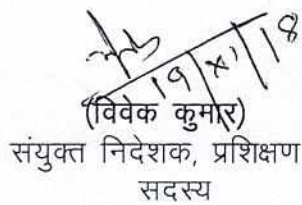 19/XI/18
(विवेक कुमार)
संयुक्त निदेशक, प्रशिक्षण
सदस्य